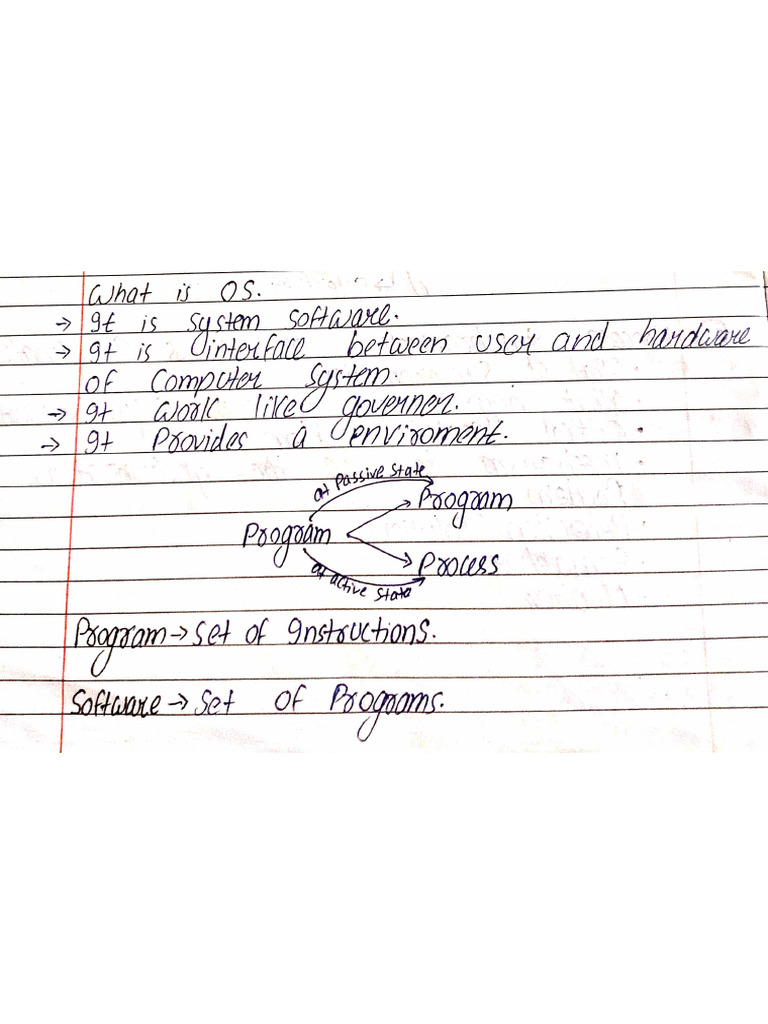 What is OS.
→ It is system software.
→ It is interface between user and hardware
of computer system.
→ It work like governer.
→ It Provides a enviroment.
at Passive state
Program
Program
Process
at active state
Program → Set of Instructions.
Software → Set of Programs.